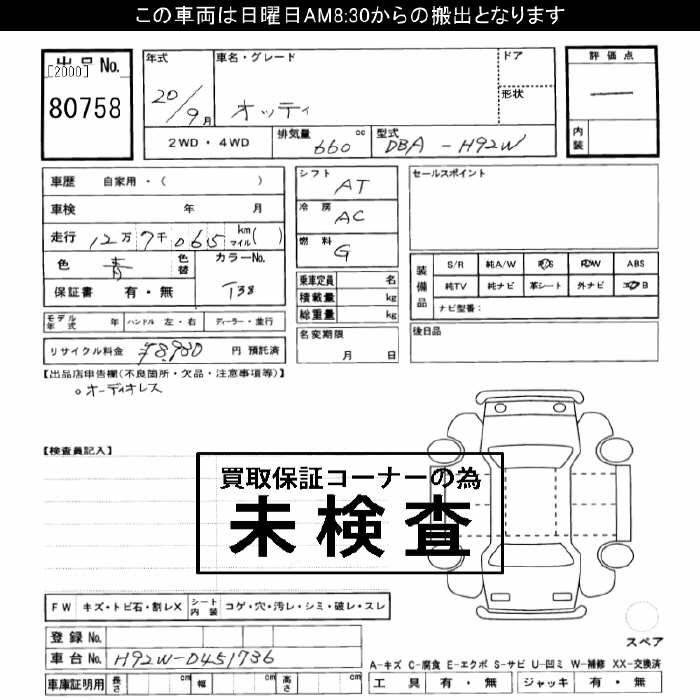 この車両は日曜日AM8:30からの搬出となります
出品 No.
[2000]
80758
年式 20/9月
車名・グレード オッティ
ドア
形状
評価点 —
内装
2WD・4WD
排気量 660 cc
型式 DBA-H92W
車歴 自家用・( )
車検 年 月
走行 12万7千065 km マイル( )
色 青 色替 カラーNo. T38
保証書 有・無
モデル年式 年 ハンドル 左・右 ディーラー・並行
リサイクル料金 ¥8,980 円 預託済
シフト AT
冷房 AC
燃料 G
乗車定員 名
積載量 kg
総重量 kg
名変期限
月 日
セールスポイント
装備品
S/R 純A/W P/S P/W ABS
純TV 純ナビ 革シート 外ナビ エアB
ナビ型番:
後日品
【出品店申告欄(不良箇所・欠品・注意事項等)】
。オーディオレス
【検査員記入】
買取保証コーナーの為
未検査
FW キズ・トビ石・割レX シート内装 コゲ・穴・汚レ・シミ・破レ・スレ
スペア
登録 No.
車台 No. H92W-D451736
車庫証明用 長さ cm 幅 cm 高さ cm
A-キズ C-腐食 E-エクボ S-サビ U-凹ミ W-補修 XX-交換済
工具 有・無 ジャッキ 有・無